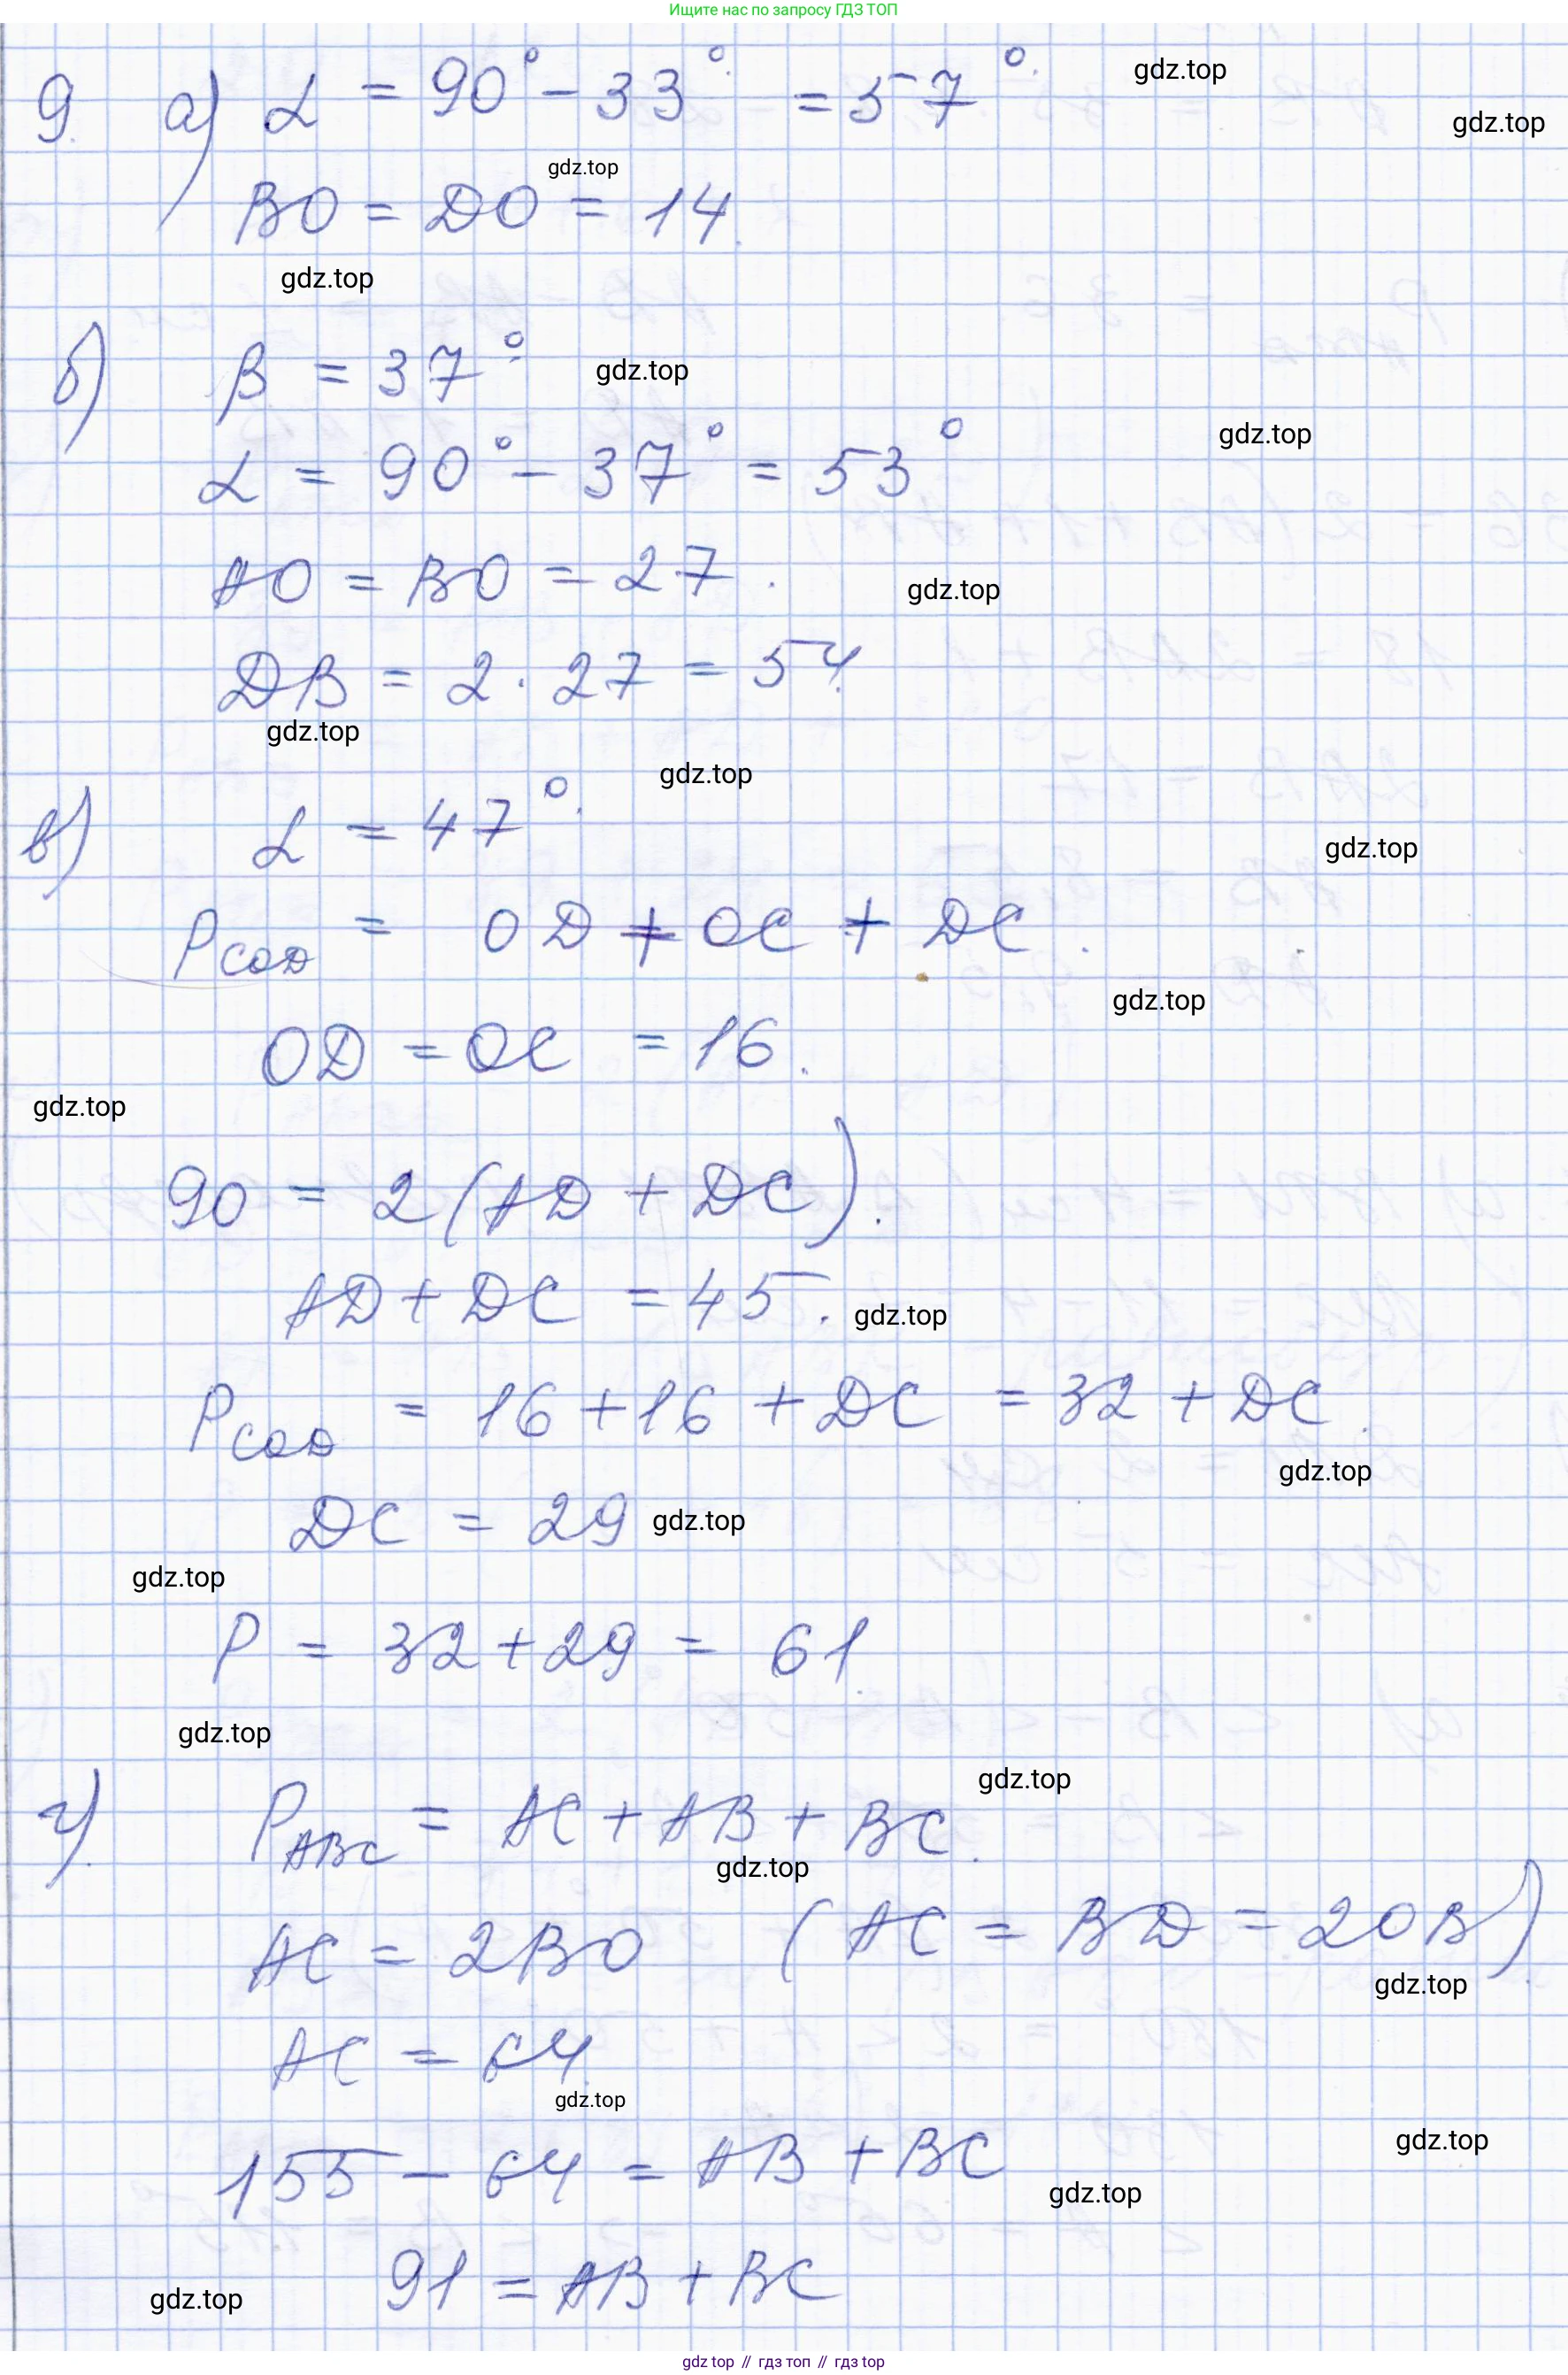 Ищите нас по запросу ГДЗ ТОП
9. а) α = 90° - 33° = 57°.
gdz.top
gdz.top
gdz.top
BO = DO = 14.
gdz.top
б) β = 37°.
gdz.top
gdz.top
α = 90° - 37° = 53°
AO = BO = 27.
gdz.top
DB = 2 · 27 = 54.
gdz.top
gdz.top
в) α = 47°.
gdz.top
P COD = OD + OC + DC.
gdz.top
OD = OC = 16.
gdz.top
90 = 2(AD + DC).
AD + DC = 45.
gdz.top
P COD = 16 + 16 + DC = 32 + DC.
gdz.top
DC = 29
gdz.top
gdz.top
P = 32 + 29 = 61.
gdz.top
gdz.top
г). P ABC = AC + AB + BC.
gdz.top
AC = 2BO (AC = BD = 2OB).
gdz.top
AC = 64.
gdz.top
gdz.top
155 - 64 = AB + BC
gdz.top
91 = AB + BC
gdz.top
gdz top // гдз топ // гдз top